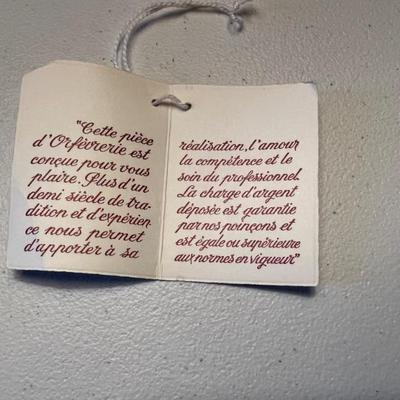 "Cette pièce
d'Orfèvrerie est
conçue pour vous
plaire. Plus d'un
demi siècle de tra-
dition et d'expérien-
ce nous permet
d'apporter à sa
réalisation, l'amour
la compétence et le
soin du professionnel.
La charge d'argent
déposée est garantie
par nos poinçons et
est égale ou supérieure
aux normes en vigueur"